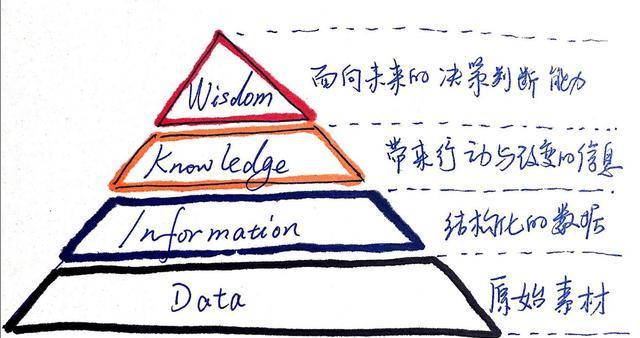 Wisdom 面向未来的决策判断能力
Knowledge 带来行动与改变的信息
Information 结构化的数据
Data 原始素材